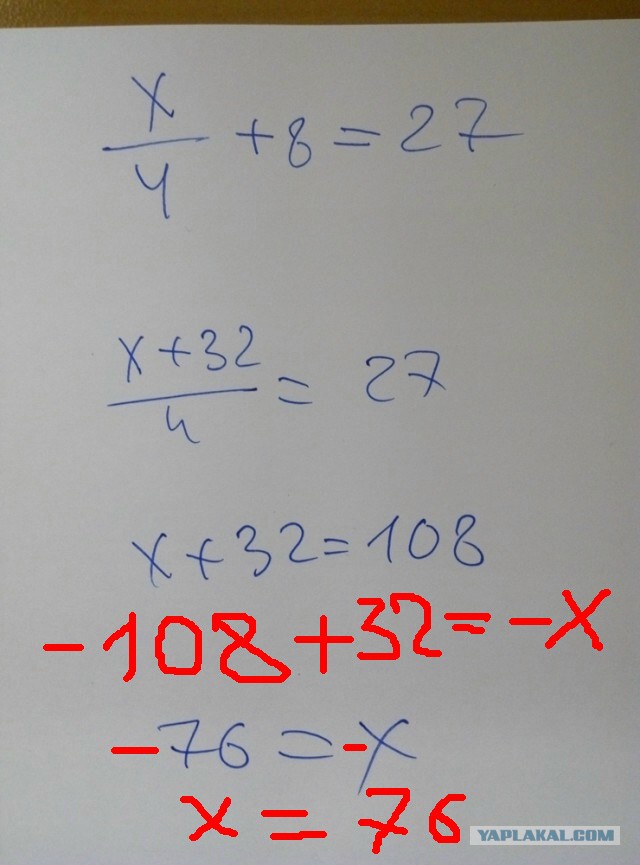 x/4 + 8 = 27
x+32/4 = 27
x + 32 = 108
-108 + 32 = -x
-76 = -x
x = 76
YAPLAKAL.COM